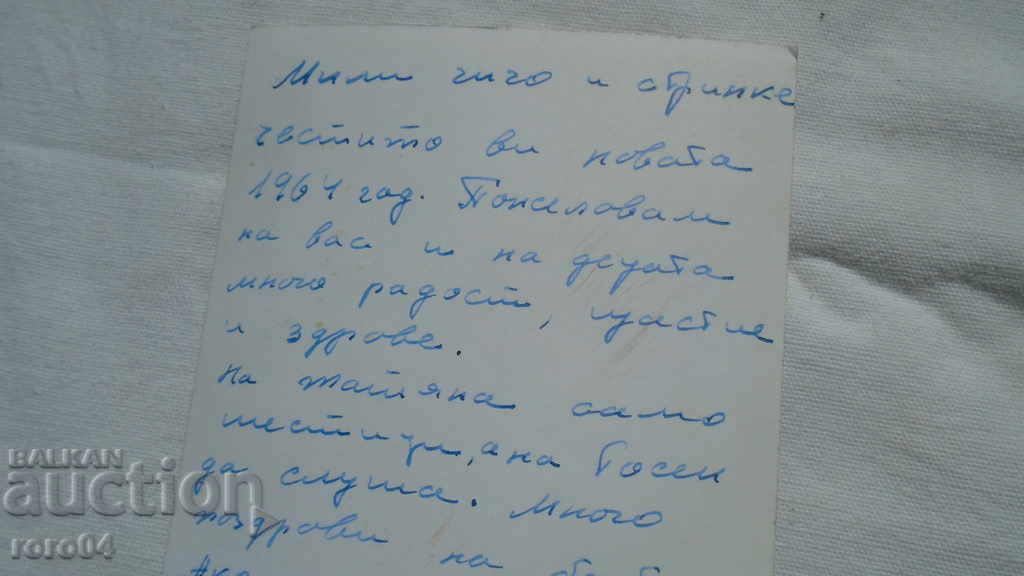 Мили чичо и стринке
честито ви новата
1964 год. Пожеловам
на вас и на децата
много радост, щастие
и здраве.
На Татяна само
шестици, а на Росен
да слуша. Много
поздрави на
BALKAN
auction
roro04